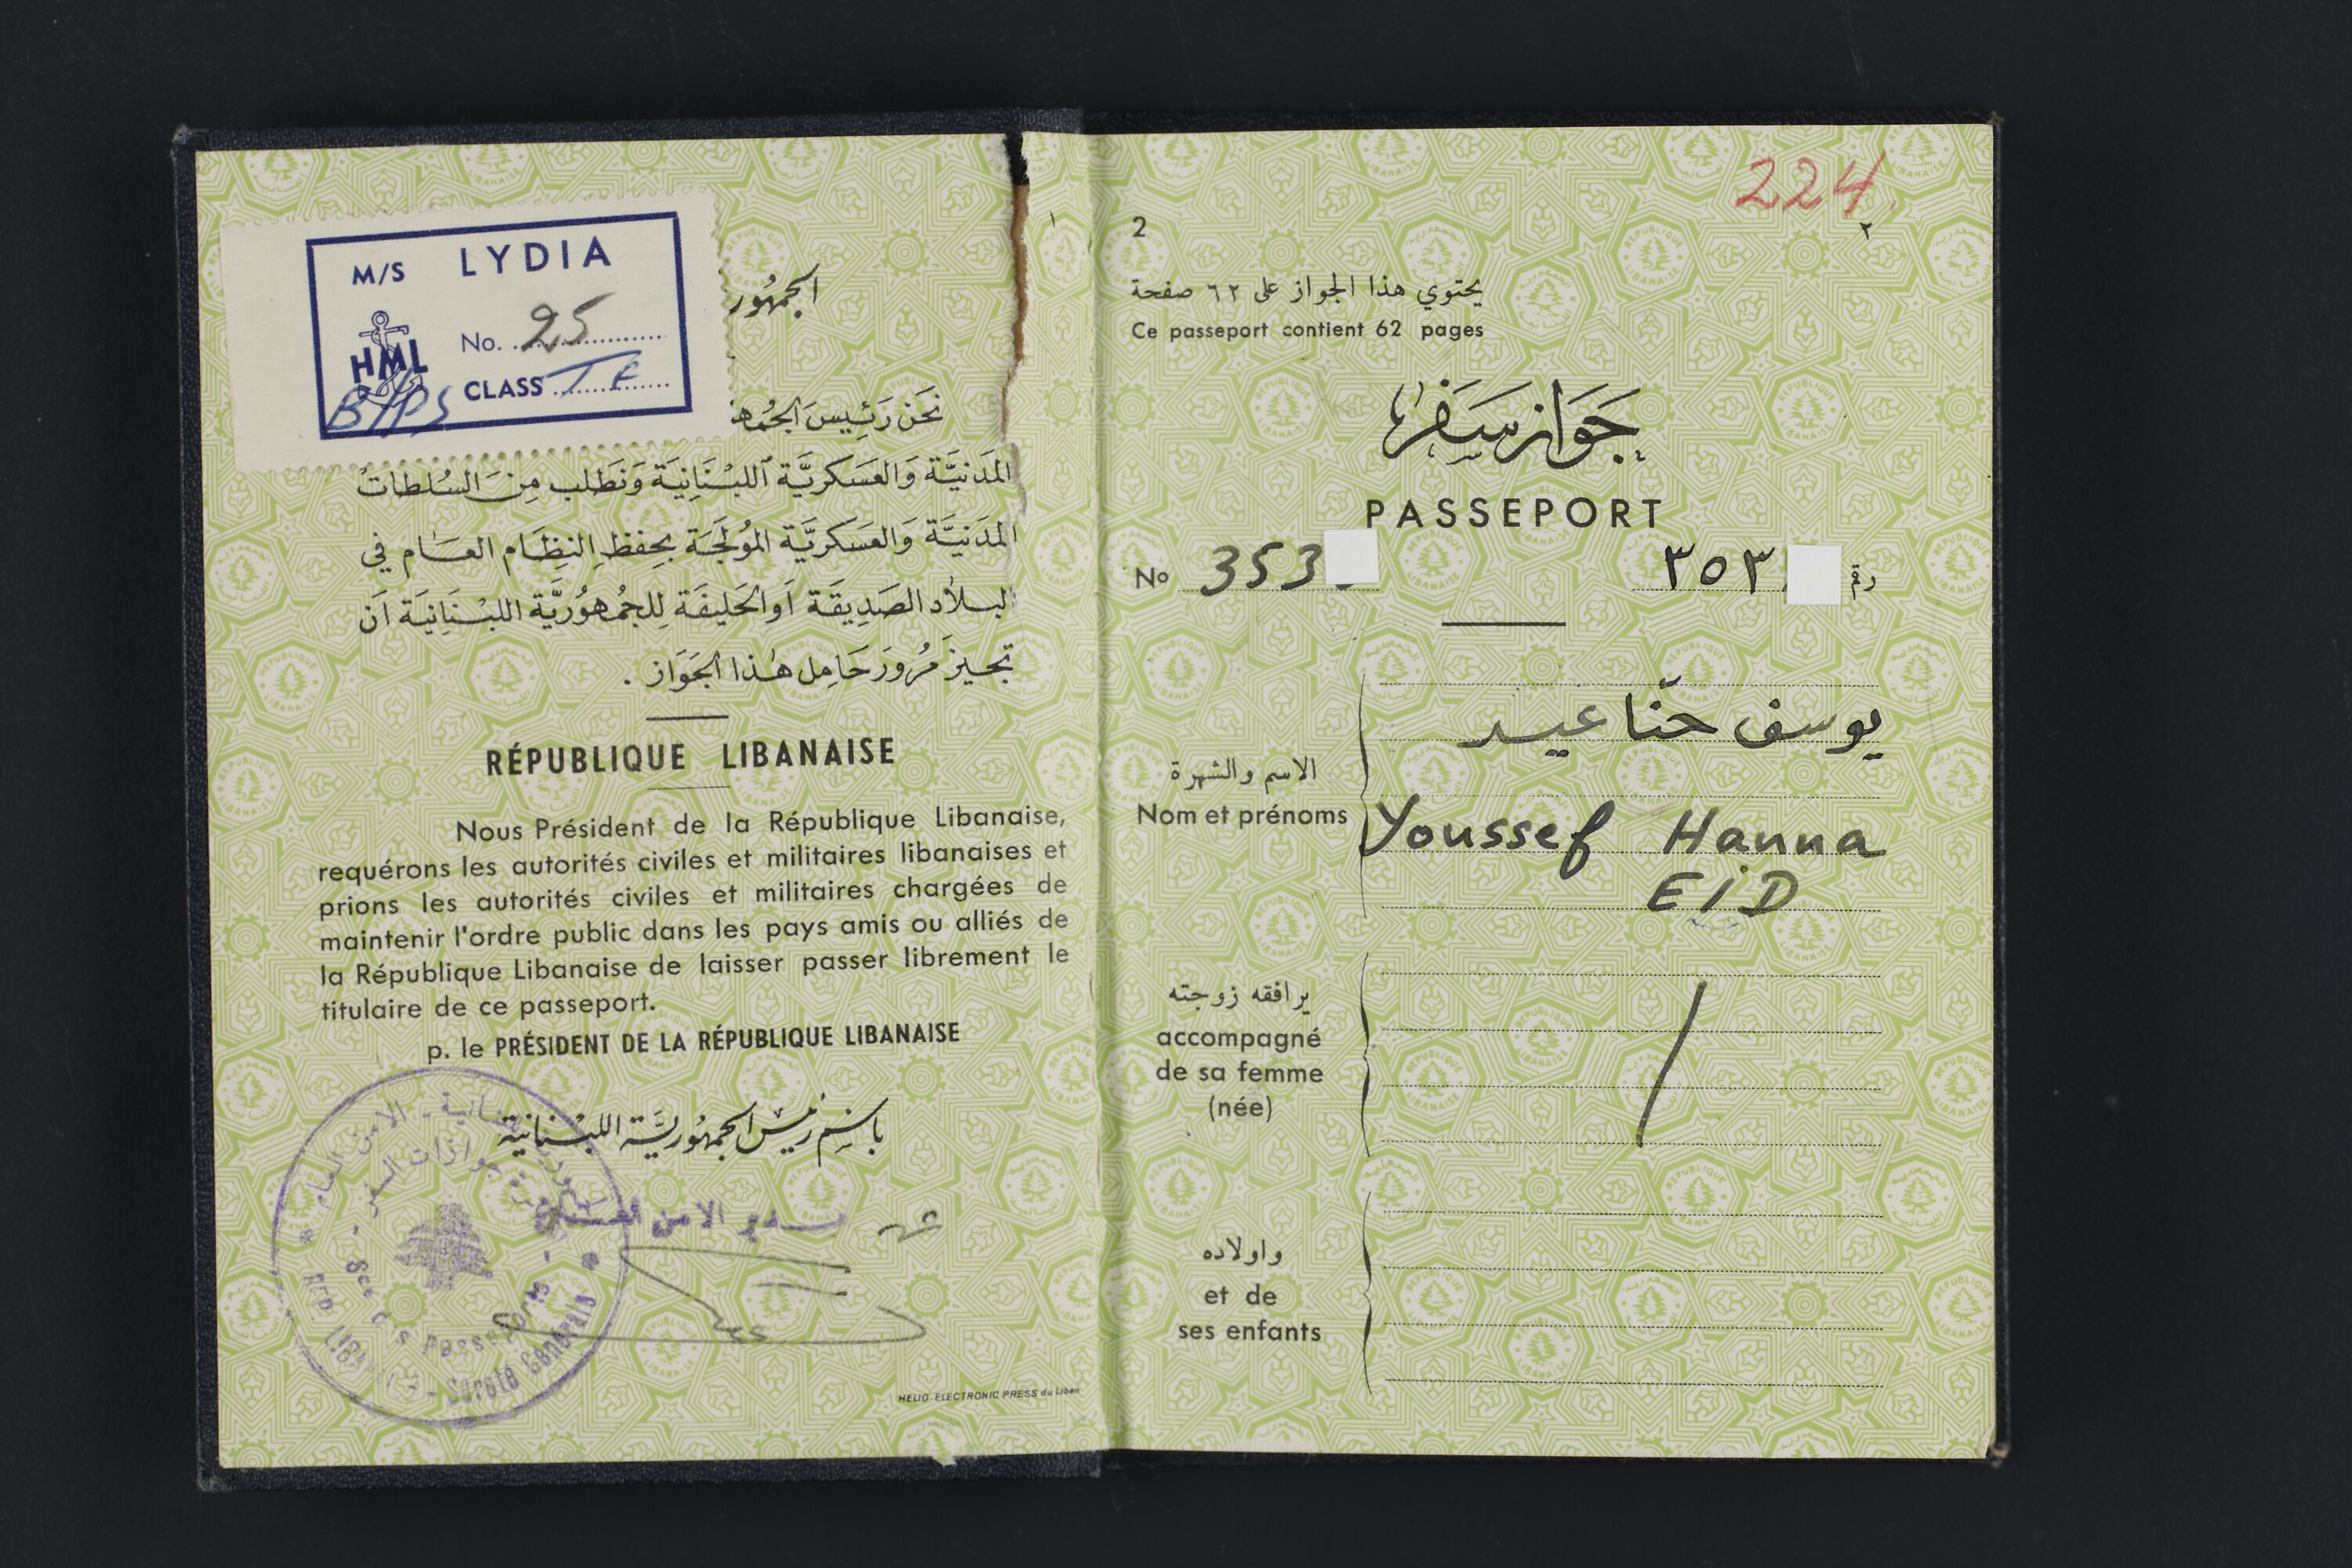 M/S LYDIA
HML
No. 25
CLASS T F
الجمهور
نحن رئيس الجمه
المدنية والعسكرية اللبنانية ونطلب من السلطات
المدنية والعسكرية المولجة بحفظ النظام العام في
البلاد الصديقة أو الحليفة للجمهورية اللبنانية أن
تجيز مرور حامل هذا الجواز .
RÉPUBLIQUE LIBANAISE
Nous Président de la République Libanaise,
requérons les autorités civiles et militaires libanaises et
prions les autorités civiles et militaires chargées de
maintenir l'ordre public dans les pays amis ou alliés de
la République Libanaise de laisser passer librement le
titulaire de ce passeport.
p. le PRÉSIDENT DE LA RÉPUBLIQUE LIBANAISE
باسم رئيس الجمهورية اللبنانية
الامن العام
جوازات السفر
Sce des passeports
Sûreté Générale
HELIO. ELECTRONIC PRESS du Liban
١
224.
2
٢
يحتوي هذا الجواز على ٦٢ صفحة
Ce passeport contient 62 pages
جواز سفر
PASSEPORT
No 353
رقم ٣٥٣
يوسف حنّا عيد
الاسم والشهرة
Nom et prénoms
Youssef Hanna
EiD
يرافقه زوجته
accompagné
de sa femme
(née)
/
واولاده
et de
ses enfants